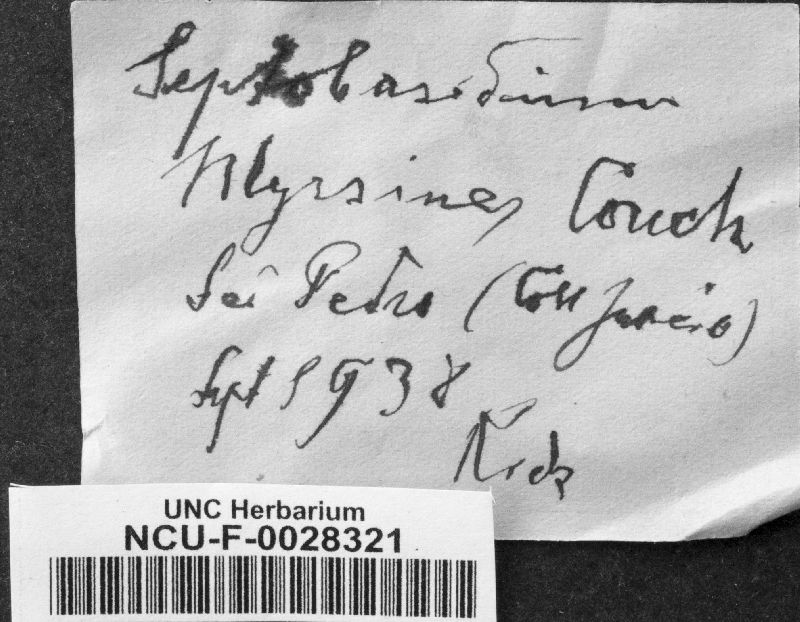 Septobasidium
Myrsines Couch
Sao Pedro (
Sept 1938
Rick
UNC Herbarium
NCU-F-0028321